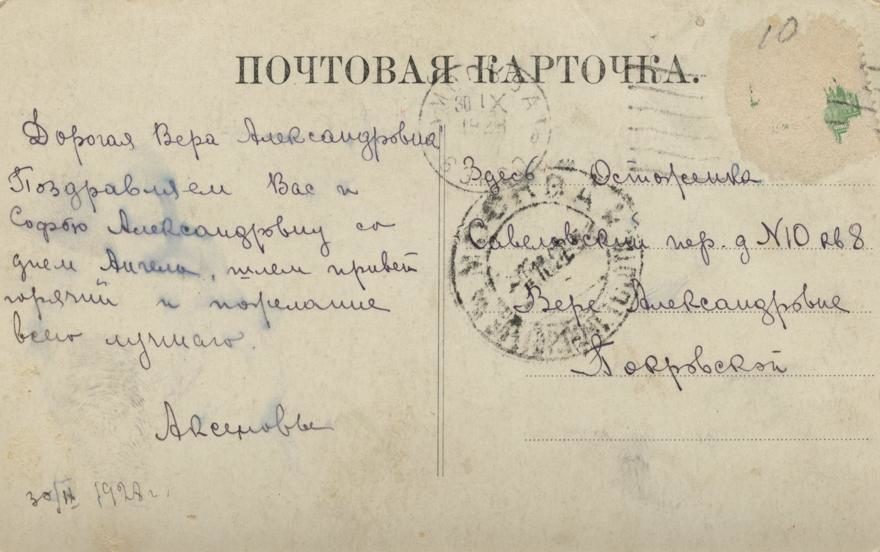 ПОЧТОВАЯ КАРТОЧКА.
10
МОСКВА
30 IX
Дорогая Вера Александровна
Поздравляем Вас и
Софью Александровну со
днем Ангела, шлем привет
горячий и пожелание
всего лучшаго.
Аксеновы
1928 г.
Здесь Остоженка
Савеловский пер. д N10 кв 8
Вере Александровне
Покровской
МОСКВА